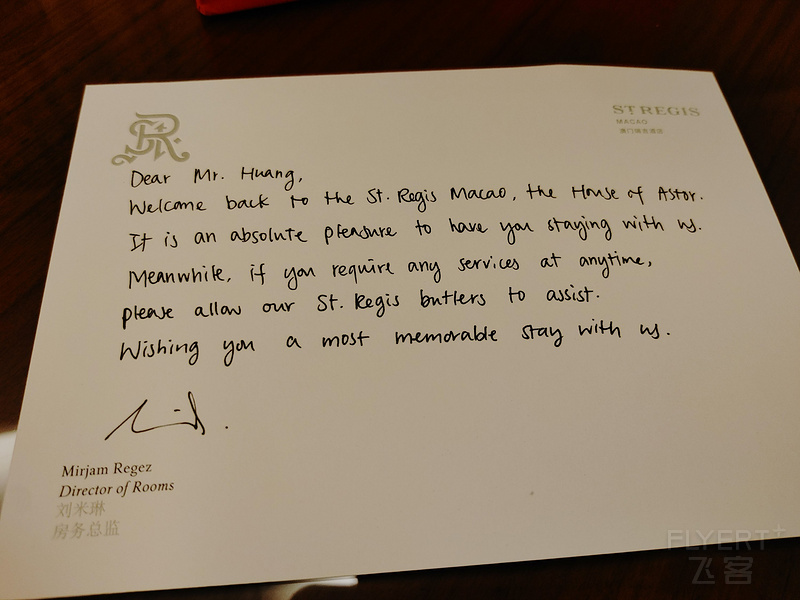 SR
ST REGIS
MACAO
澳门瑞吉酒店
Dear Mr. Huang,
Welcome back to the St. Regis Macao, the House of Astor.
It is an absolute pleasure to have you staying with us.
Meanwhile, if you require any services at anytime,
please allow our St. Regis butlers to assist.
Wishing you a most memorable stay with us.
Mirjam Regez
Director of Rooms
刘米琳
房务总监
FLYERT+
飞客